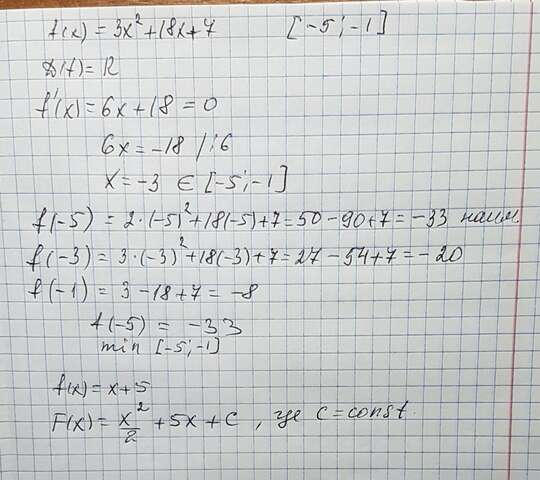 f(x) = 3x² + 18x + 7 [-5; -1]
D(f) = R
f'(x) = 6x + 18 = 0
6x = -18 / :6
x = -3 ∈ [-5; -1]
f(-5) = 2·(-5)² + 18(-5) + 7 = 50 - 90 + 7 = -33 наим.
f(-3) = 3·(-3)² + 18(-3) + 7 = 27 - 54 + 7 = -20
f(-1) = 3 - 18 + 7 = -8
f(-5) = -33
min [-5; -1]
f(x) = x + 5
F(x) = x²/2 + 5x + C, где C = const.